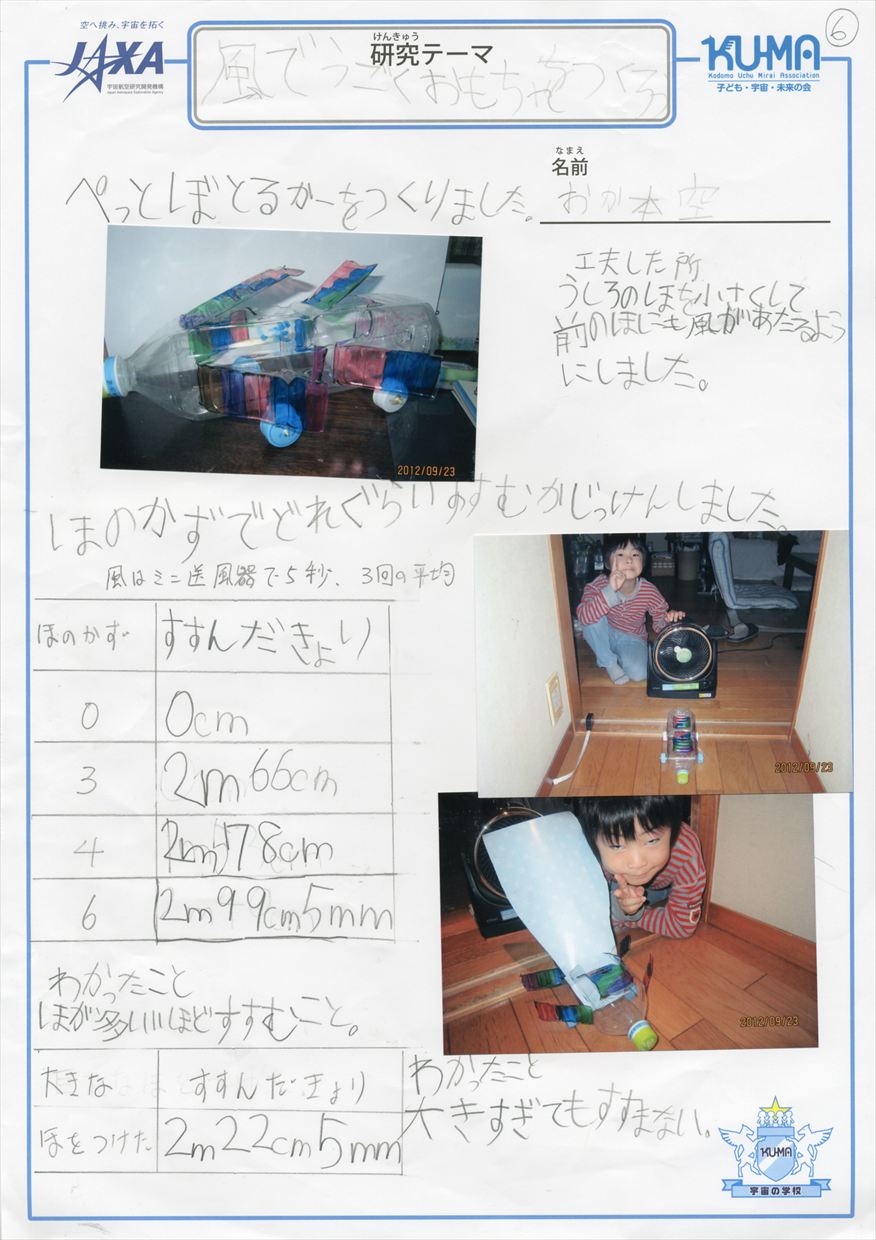 空へ挑み、宇宙を拓く
JAXA
宇宙航空研究開発機構
Japan Aerospace Exploration Agency
けんきゅう
研究テーマ
風でうごくおもちゃをつくろう
KU-MA
Kodomo Uchu Mirai Association
子ども・宇宙・未来の会
6
なまえ
名前
おか本空
ぺっとぼとるかーをつくりました。
工夫した所
うしろのほを小さくして
前のほにも風があたるよう
にしました。
2012/09/23
ほのかずでどれぐらいすすむかじっけんしました。
風はミニ送風器で5秒、3回の平均
ほのかず すすんだきょり
0 0cm
3 2m66cm
4 2m78cm
6 2m99cm5mm
2012/09/23
2012/09/23
わかったこと
ほが多いほどすすむこと。
大きな すすんだきょり
ほをつけた 2m22cm5mm
わかったこと
大きすぎてもすすまない。
KU-MA
宇宙の学校